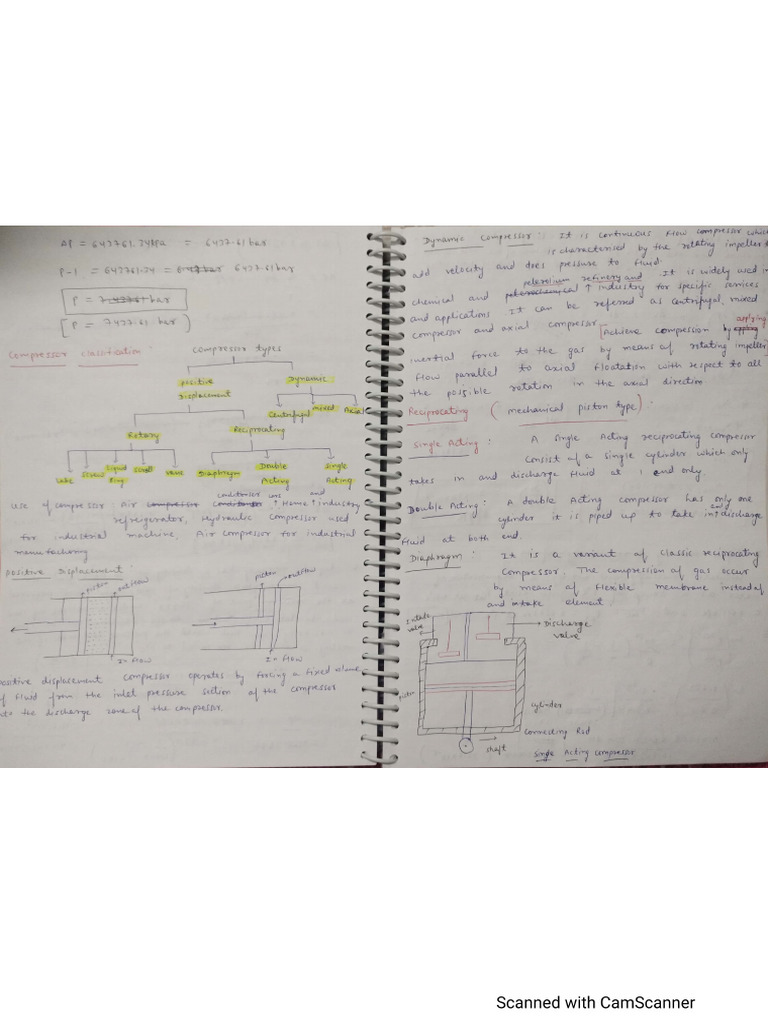 ΔP = 643761.34kpa = 6437.61 bar
P-1 = 643761.34 = 6437.61 bar
P = bar
[P = 7437.61 bar)
Compressor classification:
Compressor types
positive Displacement
Dynamic
Centrifugal mixed Axial
Rotary
Reciprocating
Lobe Screw Liquid Ring Scroll vane Diaphragm Double Acting Single Acting
use of compressor : Air conditioner cons Home and industry
refrigerator, Hydraulic compressor used
for industrial machine, Air compressor for industrial
manufacturing
positive Displacement:
piston outflow
piston outflow
In Flow
In Flow
positive displacement compressor operates by forcing a fixed volume
of fluid from the inlet pressure section of the compressor
into the discharge zone of the compressor.
Dynamic Compressor: It is continuous flow compressor which
is characterised by the rotating impeller to
add velocity and does pressure to fluid.
It is widely used in
chemical and petroleum refinery and industry for specific services
and applications It can be referred as centrifugal, mixed
compressor and axial compresor [Achieve compession by applying
inertial force to the gas by means of rotating impeller]
Flow parallel to axial floatation with respect to all
the possible rotation in the axial direction
Reciprocating (mechanical piston type):
Single Acting: A single Acting reciprocating compressor
Consist of a single cylinder which only
takes in and discharge fluid at 1 end only.
Double Acting: A double Acting compressor has only one
cylinder it is piped up to take in and discharge
fluid at both end.
Diaphragm: It is a variant of classic reciprocating
Compressor. The compression of gas occur
by means of flexible membrane instead of
and intake element.
Intake valve
Discharge valve
piston
cylinder
Connecting Rod
shaft
Single Acting Compressor
Scanned with CamScanner